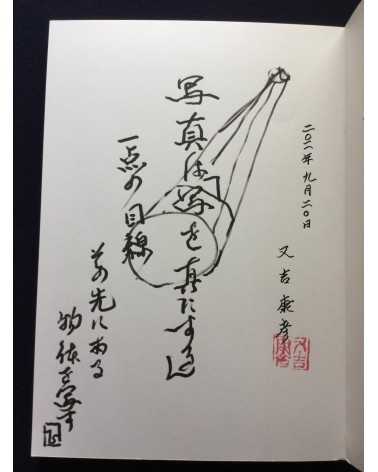 二〇二一年 九月二〇日
又吉康
写真は線を真にする
一点の目線
その先にある
物体を写す
又吉